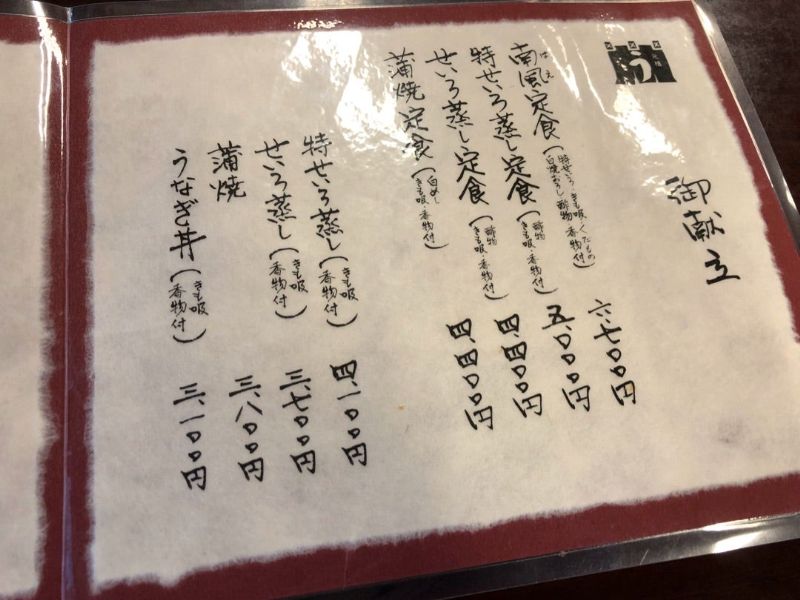 う
御献立
南風定食(特せいろ・きも吸・くだもの 白焼おろし 酢物 香物付) 六、七〇〇円
はえ
特せいろ蒸し定食(酢物 きも吸・香物付) 五、〇〇〇円
せいろ蒸し定食(酢物 きも吸・香物付) 四、四〇〇円
蒲焼定食(白めし きも吸・香物付) 四、四〇〇円
特せいろ蒸し(きも吸 香物付) 四、一〇〇円
せいろ蒸し(きも吸 香物付) 三、七〇〇円
蒲焼 三、八〇〇円
うなぎ丼(きも吸 香物付) 三、一〇〇円